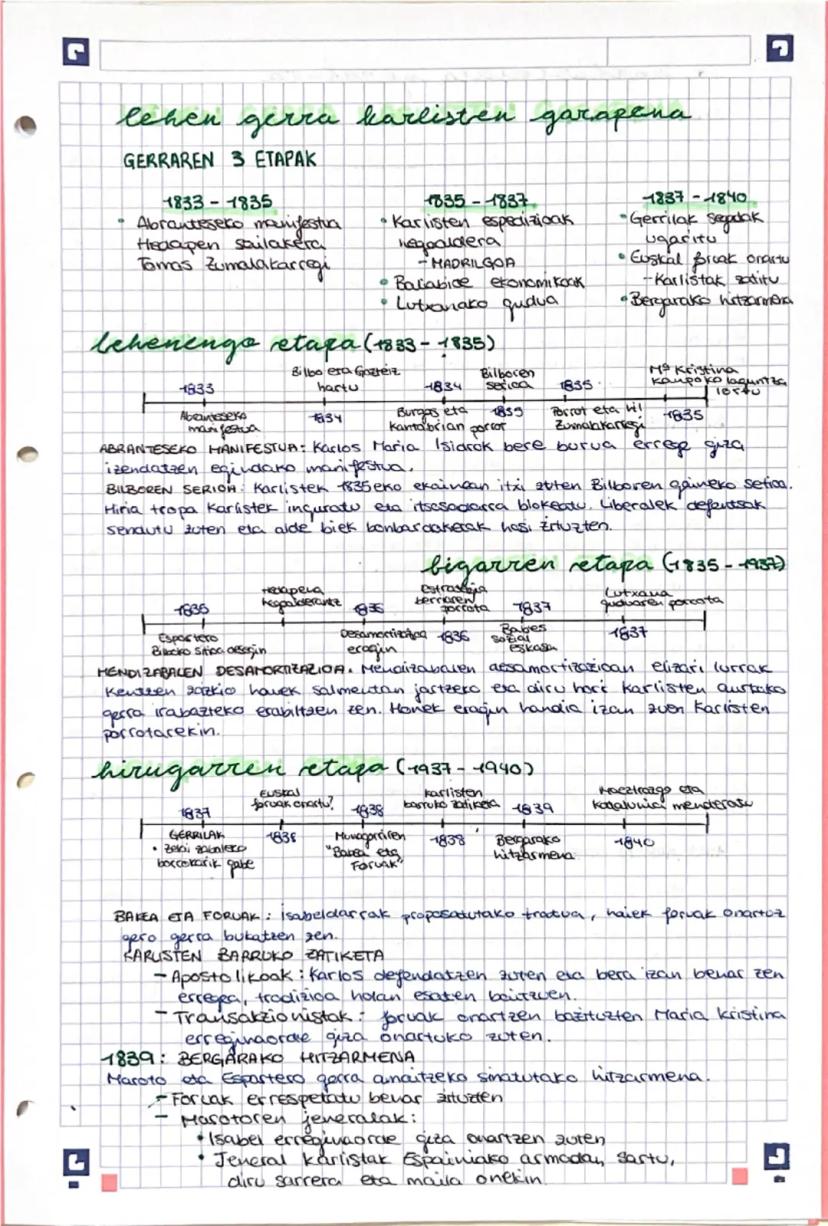 lehen gerra karlisten garapena
GERRAREN 3 ETAPAK
1833 - 1835
• Abranteseko manifestua
Hedapen sailakera
Tomas Zumalakarregi
1835 - 1837
• Karlisten espedizioak
hegoaldera
- MADRILGOA
• Baliabide ekonomikoak
• Lutxanako gudua
1837 - 1840
• Gerrilak segidak
ugaritu
• Euskal foruak onartu
- Karlistak zatitu
• Bergarako hitzarmena
lehenengo etapa (1833 - 1835)
Bilbo eta Gazteiz
hartu
Bilboren
serioa
Mª Kristina
kanpoko laguntza
lortu
1833
1834
1835
Abranteseko
manifestua
1834
Burgos eta
Kantabrian porrot
1835
Porrot eta hil
Zumalakarregi
1835
ABRANTESEKO MANIFESTUA: Karlos Maria Isidrok bere burua errege giza
izendatzen egindako manifestua.
BILBOREN SERIOA: Karlistek 1835eko ekainean itxi zuten Bilboren gaineko setioa.
Hiria tropa Karlistek inguratu eta itsasadarra blokeatu. Liberalek defentsak
sendutu zuten eta alde biek bonbardaketak hasi zirtuzten.
bigarren etapa (1835 - 1937)
Hedapena
hegoalderantz
Estrategia
berriaren
porrota
Lutxana
guduaren porrota
1835
1836
1837
Espartero
Bilboko sitioa desegin
Desamortizazioa
eragin
1836
Babes
sozial
eskasa
1837
MENDIZABALEN DESAMORTIZAZIOA: Mendizabalen desamortizazioan elizari lurrak
kentzen zazkio hauek salmentan jartzeko eta diru hori karlisten aurkako
gerra irabazteko erabiltzen zen. Honek eragin handia izan zuen Karlisten
porrotarekin.
hirugarren etapa (1937 - 1940)
Euskal
foruak onartu?
karlisten
barruko zatiketa
Maeztrazgo eta
Katalunia menderatu
1837
1838
1839
GERRILAK
• zelai zabaleko
borrokarik gabe
1838
Munagorriren
"Bakea eta
Foruak"
1838
Bergarako
hitzarmena
1840
BAKEA ETA FORUAK: isabeldarrak proposatutako tratua, haiek foruak onartuz
gero gerra bukatzen zen.
KARLISTEN BARRUKO ZATIKETA
- Apostolikoak: Karlos defendatzen zuten eta bera izan behar zen
erregea, tradizioa holan esaten baitzuen.
- Transakzionistak: foruak onartzen bazituzten Maria Kristina
erreginaorde giza onartuko zuten.
1839: BERGARAKO HITZARMENA
Maroto eta Espartero gerra amaitzeko sinatutako hitzarmena.
- Foruak errespetatu behar zituzten
- Marotoren jeneralak:
• Isabel erreginaorde giza onartzen zuten
• Jeneral karlistak Espainiako armadan sartu,
diru sarrera eta maila onekin